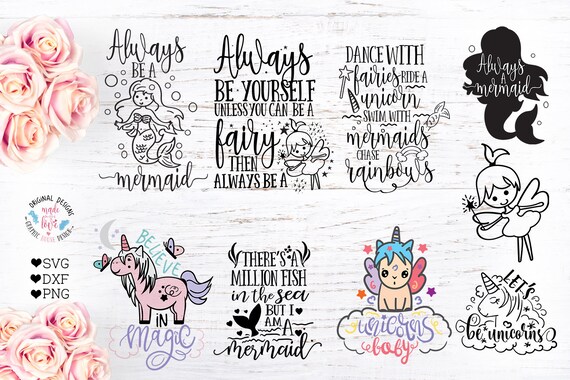 Always
BE A
mermaid
Always
BE YOURSELF
UNLESS YOU CAN BE A
fairy
THEN
ALWAYS BE A
DANCE WITH
fairies RIDE A
unicorn
SWIM WITH
mermaids
CHASE
rainbows
Always
mermaid
ORIGINAL DESIGNS
made
with
love
GRAPHIC HOUSE DESIGN
SVG
DXF
PNG
BELIEVE
IN
Magic
THERE'S A
MILLION FISH
in the sea
BUT I
AM A
mermaid
unicorns
baby
LET'S
be unicorns